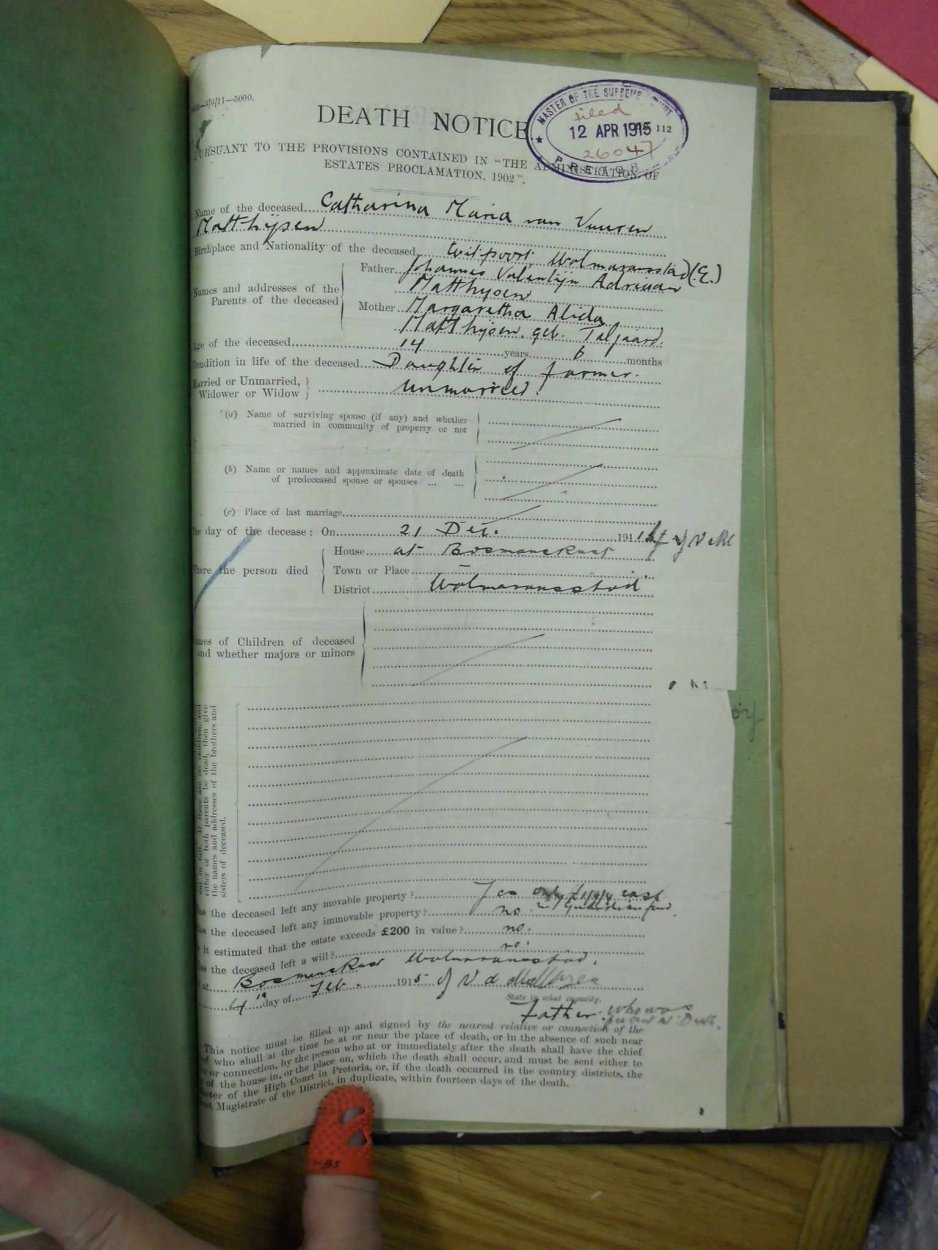 8/6/11—5000.
DEATH NOTICE
112
MASTER OF THE SUPREME COURT
filed
12 APR 1915
26047
PRETORIA
PURSUANT TO THE PROVISIONS CONTAINED IN "THE ADMINISTRATION OF
ESTATES PROCLAMATION, 1902".
Name of the deceased Catharina Maria van Vuuren
Matthysen
Birthplace and Nationality of the deceased Witpoort Wolmaransstad (E.)
Names and addresses of the Parents of the deceased
Father Johannes Valentyn Adriaan
Matthysen
Mother Margaretha Alida
Matthysen geb. Taljaard.
Age of the deceased 14 years 6 months
Condition in life of the deceased Daughter of farmer.
Married or Unmarried, Widower or Widow } unmarried.
(a) Name of surviving spouse (if any) and whether
married in community of property or not
(b) Name or names and approximate date of death
of predeceased spouse or spouses ... ...
(c) Place of last marriage
The day of the decease: On 21 Dec. 1914
Where the person died
House at Bosmansrust
Town or Place
District Wolmaransstad
Names of Children of deceased
and whether majors or minors
either or both parents be dead, then give
the names and addresses of the brothers and
sisters of deceased.
Has the deceased left any movable property? Yes only cash
in Guardian fund.
Has the deceased left any immovable property? no
Is it estimated that the estate exceeds £200 in value? no.
Has the deceased left a will? no.
at Bosmansrust Wolmaransstad.
4th day of Feb. 1915 J V A Matthysen
State in what capacity.
Father. who was
present at Death.
This notice must be filled up and signed by the nearest relative or connection of the
who shall at the time be at or near the place of death, or in the absence of such near
or connection, by the person who at or immediately after the death shall have the chief
of the house in, or the place on, which the death shall occur, and must be sent either to
Master of the High Court in Pretoria, or, if the death occurred in the country districts, the
Magistrate of the District, in duplicate, within fourteen days of the death.